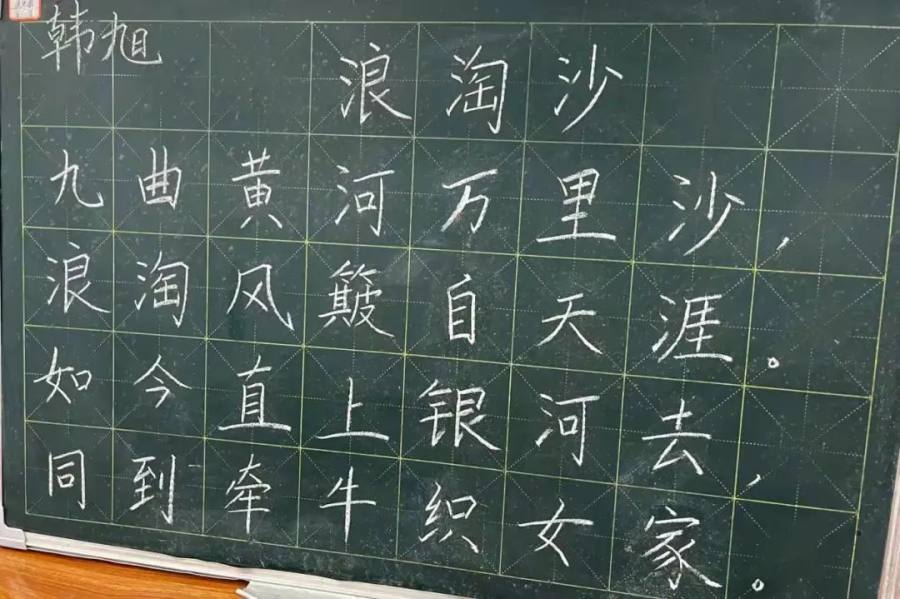 韩旭
浪淘沙
九曲黄河万里沙,
浪淘风簸自天涯。
如今直上银河去,
同到牵牛织女家。